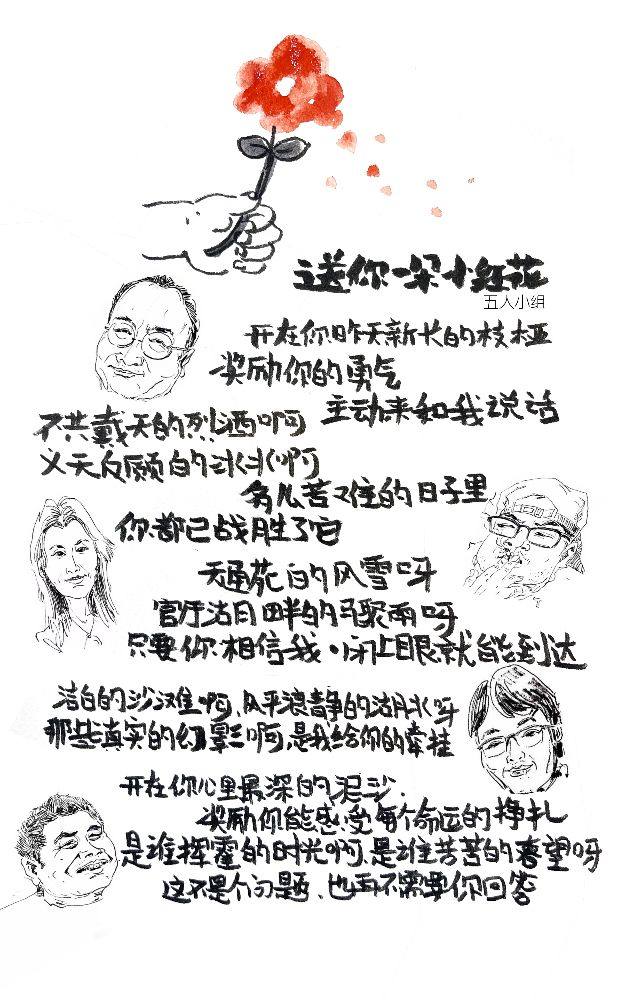 送你一朵小红花
五人小组
开在你昨天新长的枝桠
奖励你的勇气
主动来和我说话
不共戴天的烈酒啊
义无反顾的冰水啊
多么苦难的日子里
你都已战胜了它
天通苑的风雪呀
官厅湖畔的骤雨呀
只要你相信我、闭上眼就能到达
洁白的沙滩啊、风平浪静的湖水呀
那些真实的幻影啊、是我给你的牵挂
开在你心里最深的泥沙、
奖励你能感受每个命运的挣扎
是谁挥霍的时光啊、是谁苦苦的奢望呀
这不是个问题、也再不需要你回答